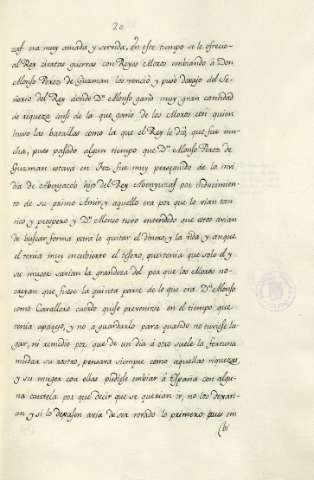 20
zaf era muy amada y servida, en este tiempo se le ofrecio
al Rey ciertas guerras con Reyes Moros embiando á Don
Alonso Perez de Guzman los venció y puso debajo del Se-
ñorio del Rey donde Dn. Alonso ganó muy gran cantidad
de riqueza assi de la que ganó de los Moros con quien
tuvo las batallas como la que el Rey le dió, que fue mu-
cha, pues pasado algun tiempo que Dn. Alonso Perez de
Guzman estava en Fez fue muy perseguido de la invi
dia de Abenjacob hijo del Rey Abenjuzaf por inducimien
to de su primo Amir, y aquello era por que le vian tan
rico y prospero y Dn. Alonso tuvo entendido que estos avian
de buscar forma para le quitar el dinero, y la vida y aunque
el tenia muy encubierto el tesoro, que tenia que solo el y
su muger savian la grandeza del por que los Moros no
creyan que fuese la quinta parte de lo que era Dn. Alonso
como Cavallero cuerdo quiso prevenirse en el tiempo que
tenia aparejo, y no á guardarlo para quando no tuviese lu
gar, ni remedio por que de un dia á otro suele la fortuna
mudar su rostro, pensava siempre como aquellas riquezas,
y su muger con ellas pudiese embiar á España con algu-
na cautela por que decir que se querian ir, no los dexari-
an y si lo dexasen avia de ser rovado lo primero; pues em
(bi